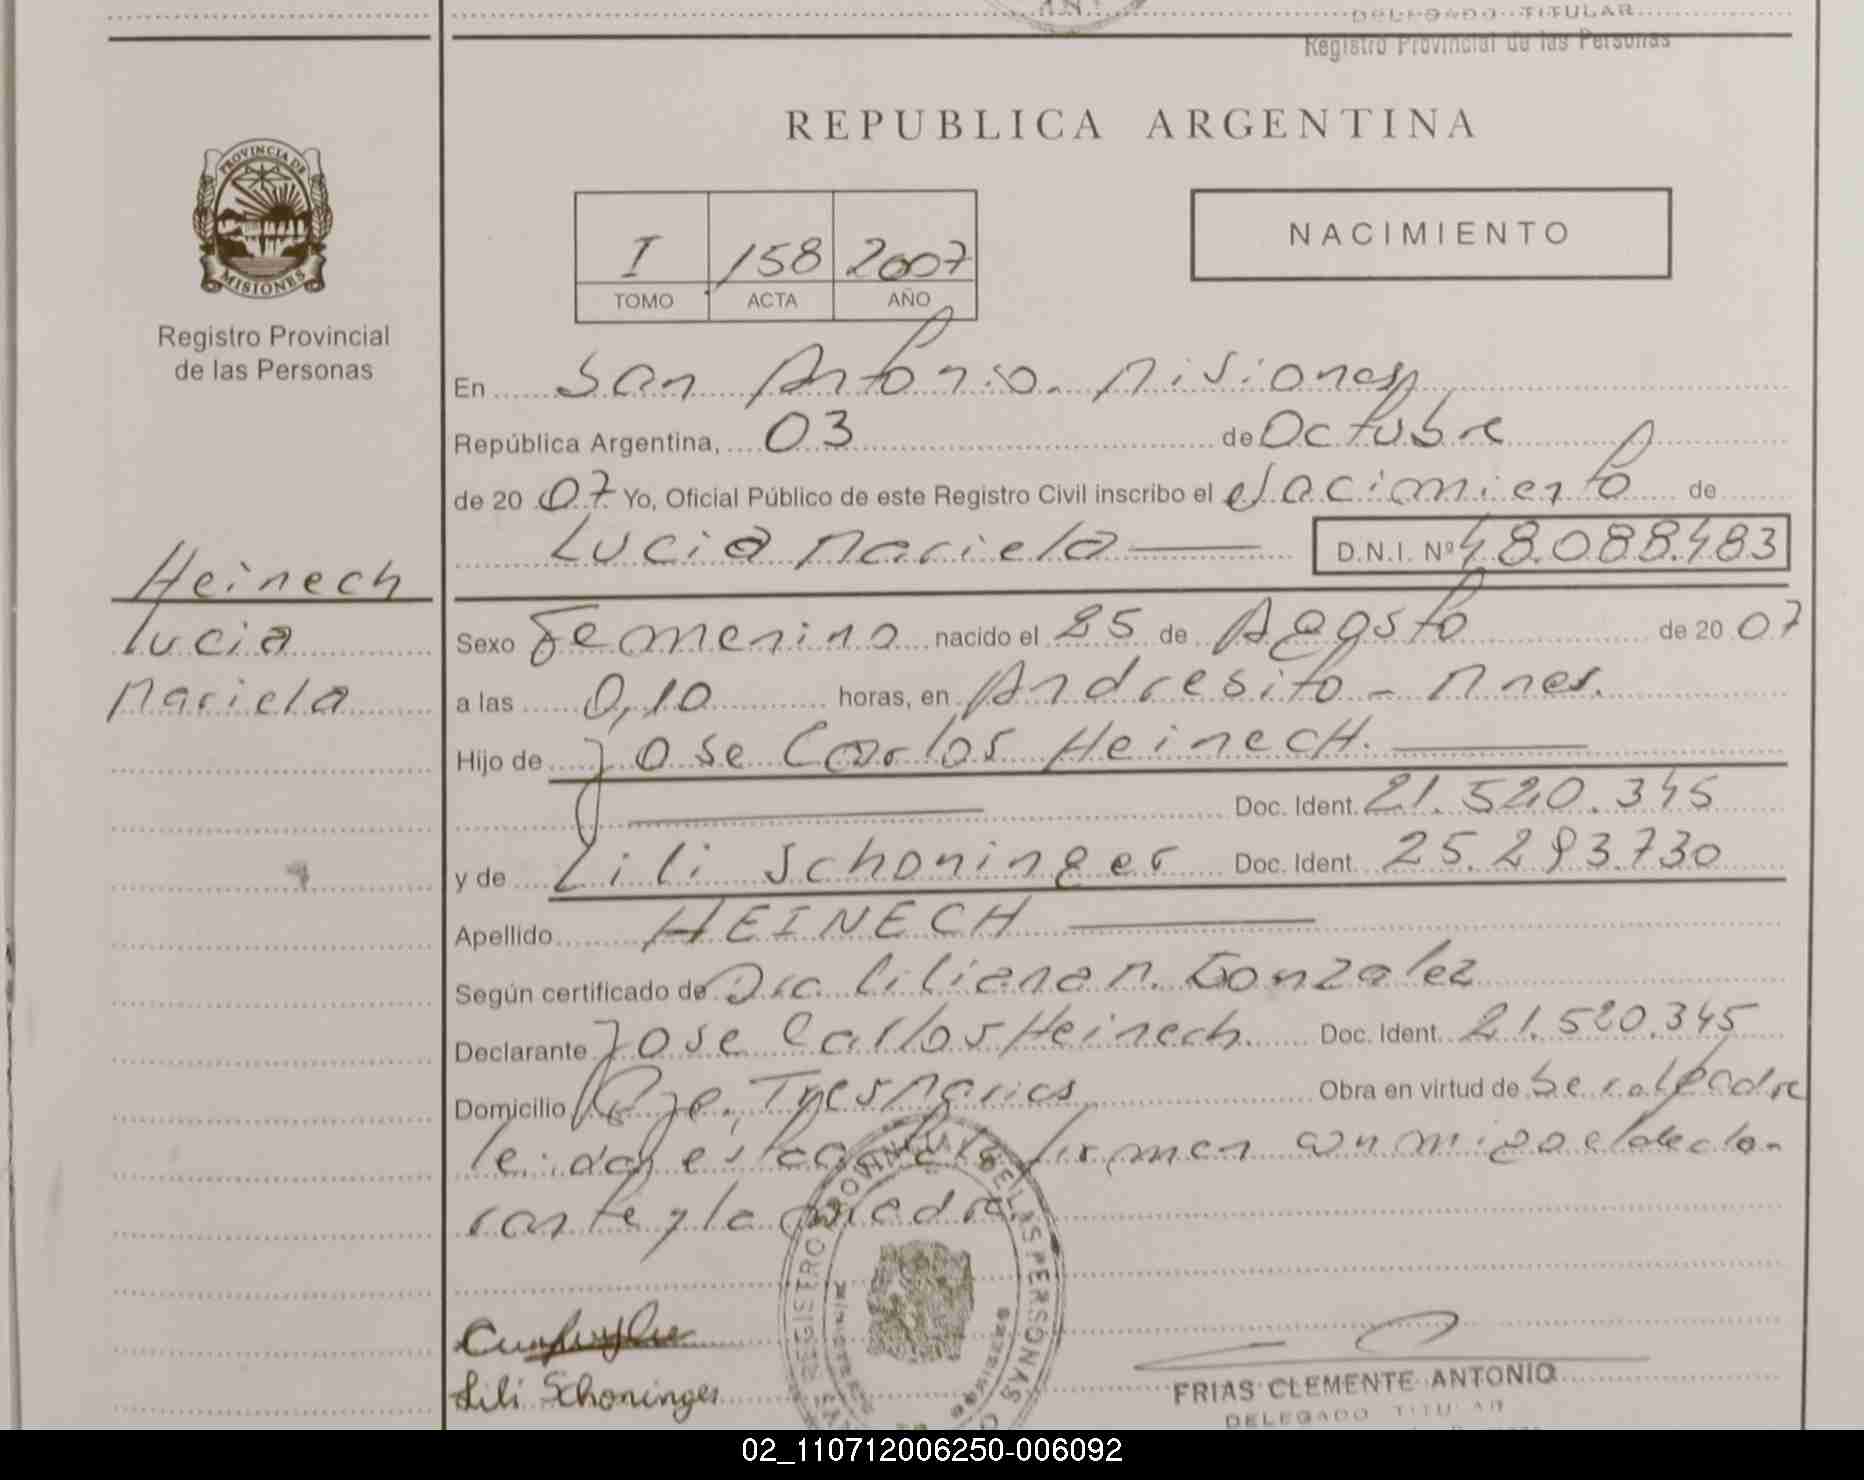 DELEGADO TITULAR
Registro Provincial de las Personas
REPUBLICA ARGENTINA
PROVINCIA DE
MISIONES
Registro Provincial
de las Personas
I 158 2007
TOMO ACTA AÑO
NACIMIENTO
En San Antonio. Misiones
República Argentina, 03 de Octubre
de 20 07 Yo, Oficial Público de este Registro Civil inscribo el Nacimiento de
Lucia Mariela D.N.I. Nº 48.088.483
Heinech
Lucia
Mariela
Sexo Femenino nacido el 25 de Agosto de 20 07
a las 0,10 horas, en Andresito - Mnes.
Hijo de Jose Carlos Heinech.
Doc. Ident. 21.520.345
y de Lili Schoninger Doc. Ident. 25.293.730
Apellido HEINECH
Según certificado de Dra. Liliana M. Gonzalez
Declarante Jose Carlos Heinech. Doc. Ident. 21.520.345
Domicilio Pje. Tres Marias Obra en virtud de Ser el Padre
leida esta acta firman conmigo el decla-
rante y la madre.
REGISTRO PROVINCIAL DE LAS PERSONAS
Lili Schoninger
FRIAS CLEMENTE ANTONIO
DELEGADO TITULAR
02_110712006250-006092